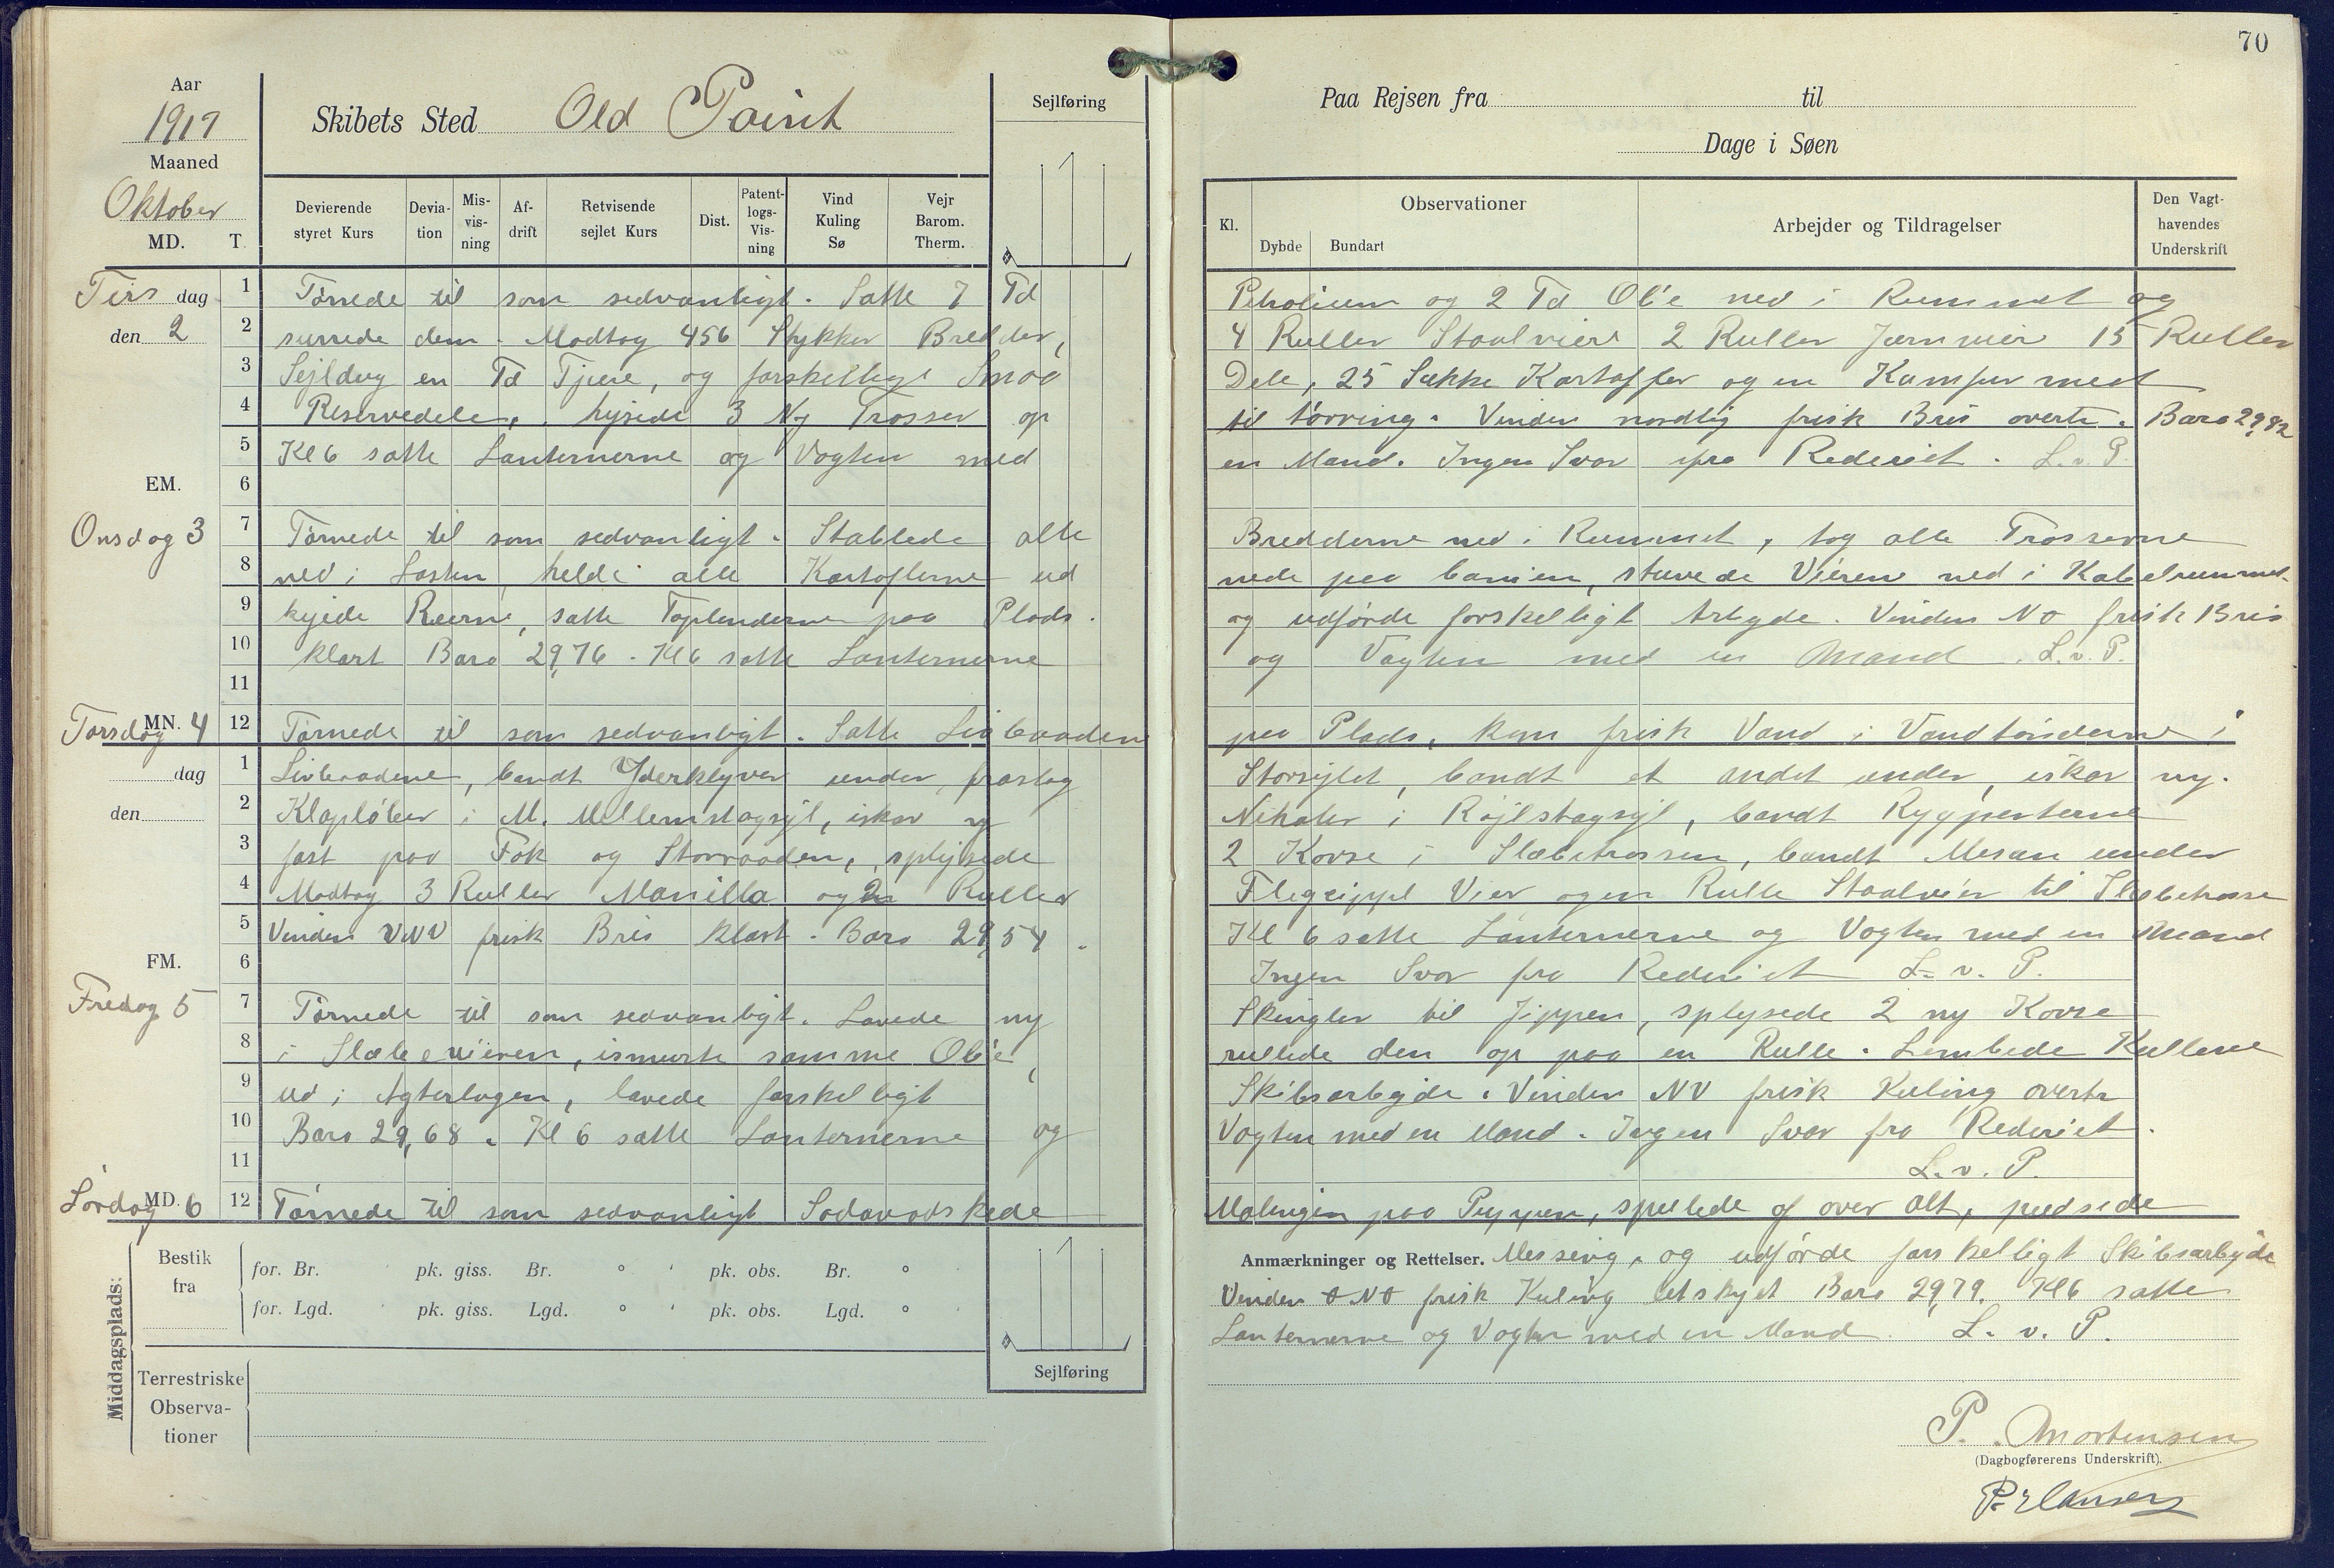 70
Aar
1917
Maaned
Oktober
MD. T.
Skibets Sted Old Point
Sejlføring
Paa Rejsen fra til
Dage i Søen
Devierende styret Kurs
Devia- tion
Mis- vis- ning
Af- drift
Retvisende sejlet Kurs
Dist.
Patent- logs- Vis- ning
Vind Kuling Sø
Vejr Barom. Therm.
Kl.
Observationer
Dybde Bundart
Arbejder og Tildragelser
Den Vagt- havendes Underskrift
Tirs dag 1 Törnede til som sedvanligt. Satte 7 Td Petrolium og 2 Td Olie ned i Rummet og
den 2 2 surrede dem. Modtog 456 Stykker Bredder, 4 Ruller Staalvier 2 Ruller Jernvier 15 Ruller
3 Sejldug en Td Tjære, og forskellige Smaa Dele, 25 Sække Kartofler og en Kamfur med
4 Reservedele, hejsede 3 Ny Trosser op til törring. Vinden nordlig frisk Bris overtr. Baro 29,92
5 Kl 6 satte Lanternerne og Vagten med en Mand. Ingen Svar fra Rederiet. L. v. P.
EM. 6
Onsdag 3 7 Törnede til som sedvanligt. Stablede alle Bredderne ned i Rummet, tog alle Trosserne
8 ned i Lasten, helde alle Kartoflerne ud nede paa Banien, stuvede Vieren ned i Kabelrummet
9 kejede Reerne, satte Toplenderne paa Plads. og udförde forskelligt Arbejde. Vinden NO frisk Bris
10 klart Baro 29,76. Kl 6 satte Lanternerne og Vagten med en Mand. L. v. P.
11
MN. Torsdag 4 12 Törnede til som sedvanligt. Satte Livbaadene paa Plads, kom frisk Vand i Vandtönderne i
dag 1 Livbaadene, bandt Yderklyver under, fraslog Storsejlet, bandt et andet under, iskar ny.
den 2 Klapløber i M. Mellemstagsejl, iskar ny Nihaler i Röjlstagsejl, bandt Rygpenterne
3 fast paa Fok og Storraaden, splejsede 2 Kovse i Slæbetrossen, bandt Mesan under
4 Modtog 3 Ruller Manilla og 2 Ruller Vier og en Rulle Staalvier til Slæbetrosse
5 Vinden VNV frisk Bris klart. Baro 29,54. Kl 6 satte Lanternerne og Vagten med en Mand
FM. 6 Ingen Svar fra Rederiet L. v. P.
Fredag 5 7 Törnede til som sedvanligt. Lavede ny Skingler til Jippen, splejsede 2 ny Kovse
8 i Slæbevieren, ismurte samme Olie, rullede den op paa en Rulle. Lembede Kullene
9 ud i Agterlugen, lavede forskelligt Skibsarbejde. Vinden NV frisk Kuling overtr
10 Baro 29,68. Kl 6 satte Lanternerne og Vagten med en Mand. Ingen Svar fra Rederiet.
11 L. v. P.
MD. Lördag 6 12 Törnede til som sedvanligt Sodavadskede Malingen paa Puppen, spulede af over Alt, pudsede
Middagsplads:
Bestik fra
for. Br. pk. giss. Br. ° ' pk. obs. Br. ° '
for. Lgd. pk. giss. Lgd. ° ' pk. obs. Lgd. ° '
Sejlføring
Terrestriske Observa- tioner
Anmærkninger og Rettelser. Messing, og udförde forskelligt Skibsarbejde
Vinden ONO frisk Kuling letskyet Baro 29,79. Kl 6 satte
Lanternerne og Vagten med en Mand. L. v. P.
P. Mortensen
(Dagbogførerens Underskrift).
P. Hansen